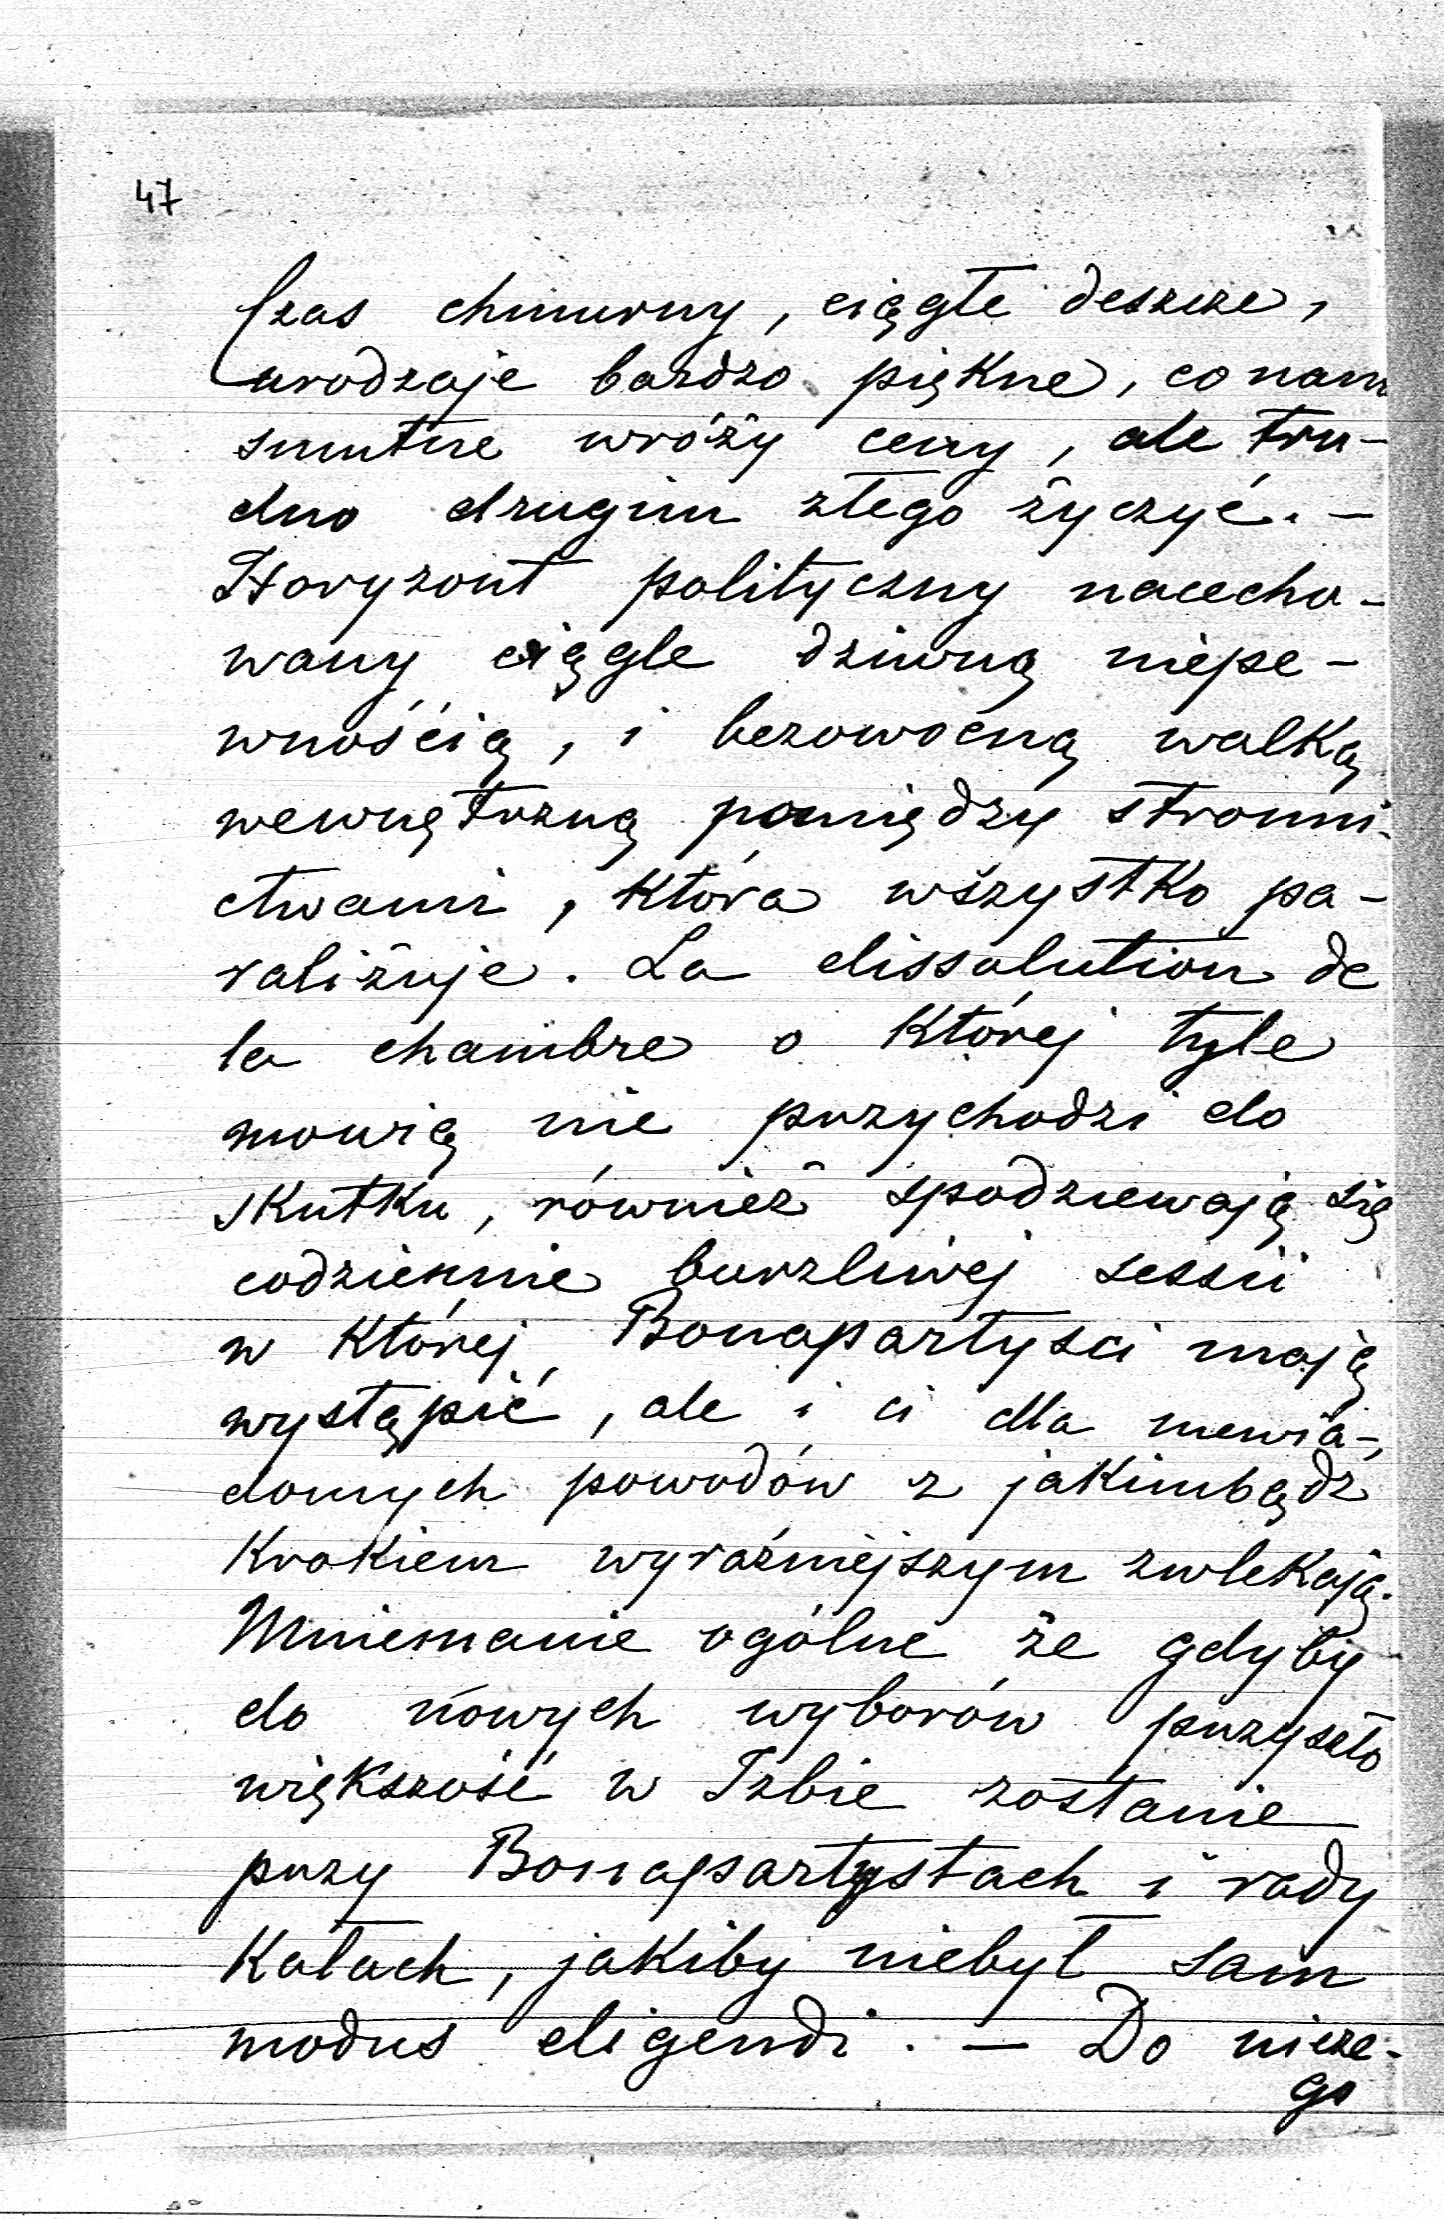 47
Czas chmurny, ciągłe deszcze,
urodzaje bardzo piękne, co nam
smutne wróży ceny, ale tru-
dno drugim złego życzyć. —
Horyzont polityczny nacecho-
wany ciągle dziwną niepe-
wnośćią, i bezowocną walką
wewnętrzną pomiędzy stronni-
ctwami, która wszystko pa-
raliżuje. La dissolution de
la chambre o której tyle
mowią nie przychodzi do
skutku, również spodziewają się
codziennie burzliwej sessii
w której Bonapartysci mają
wystąpić, ale i ci dla niewia-
domych powodów z jakimbądź
krokiem wyraźniejszym zwlekają.
Mniemanie ogólne że gdyby
do nowych wyborów przyszło
większość w Izbie zostanie
przy Bonapartystach i rady
kałach, jakiby niebył sam
modus eligendi. — Do nicze-
go